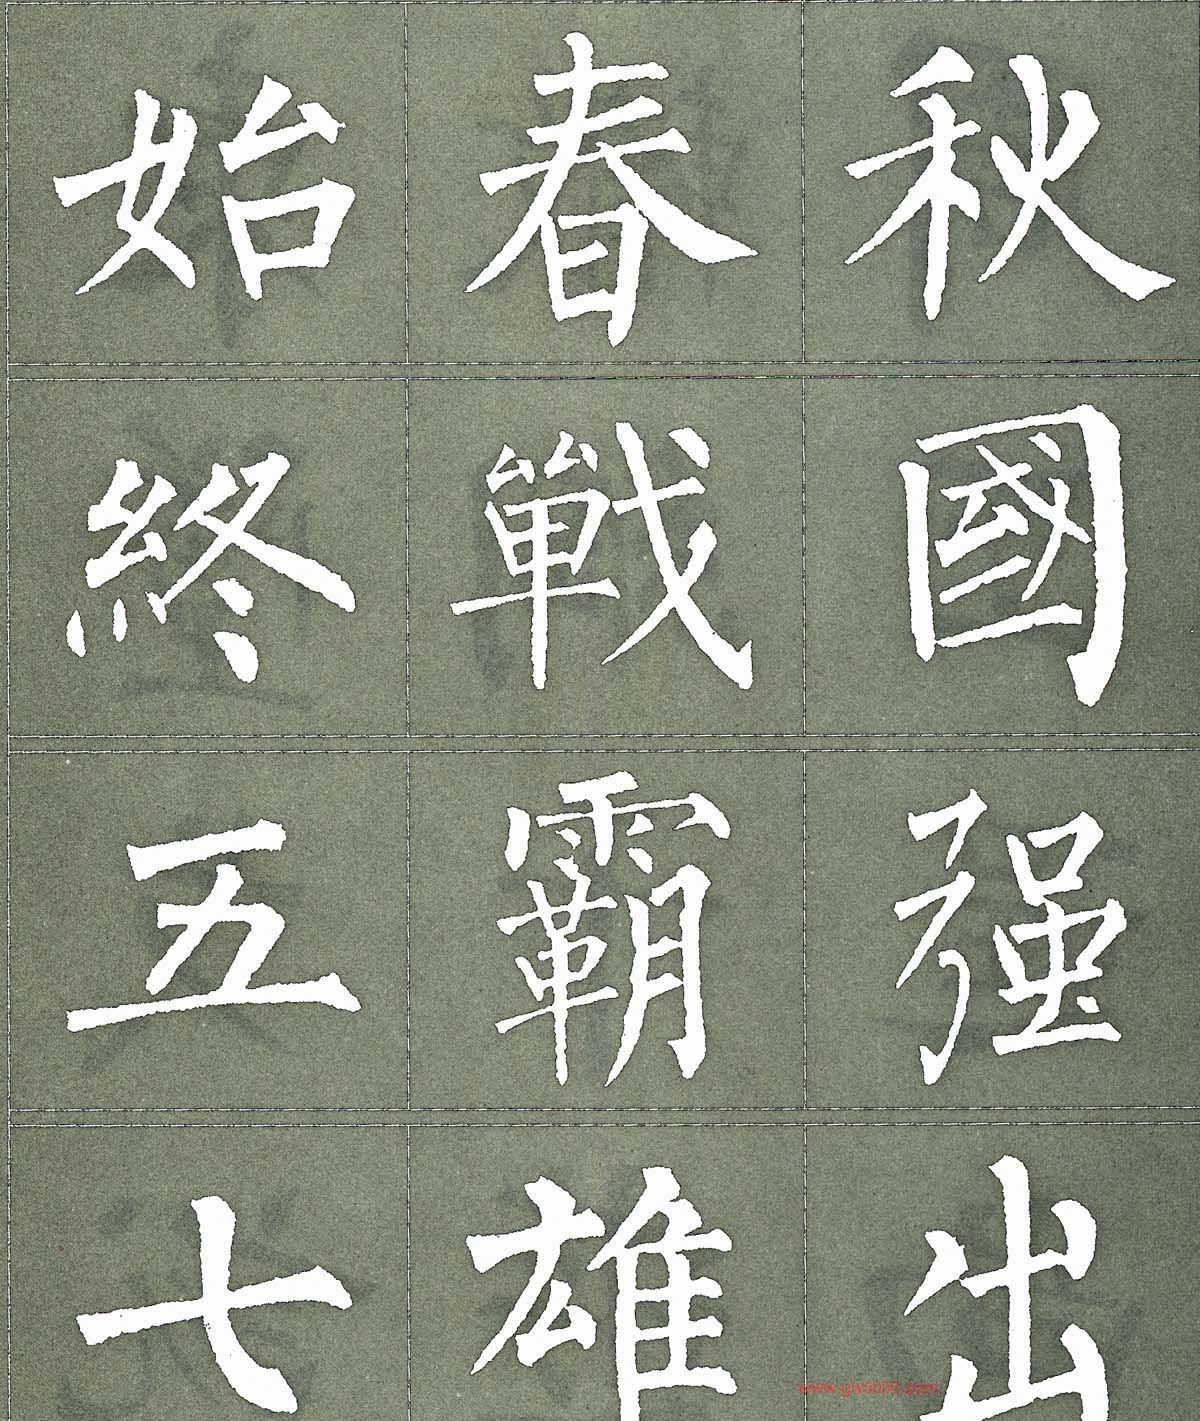 始春秋
終戰國
五霸强
七雄出
www.gw5000.com